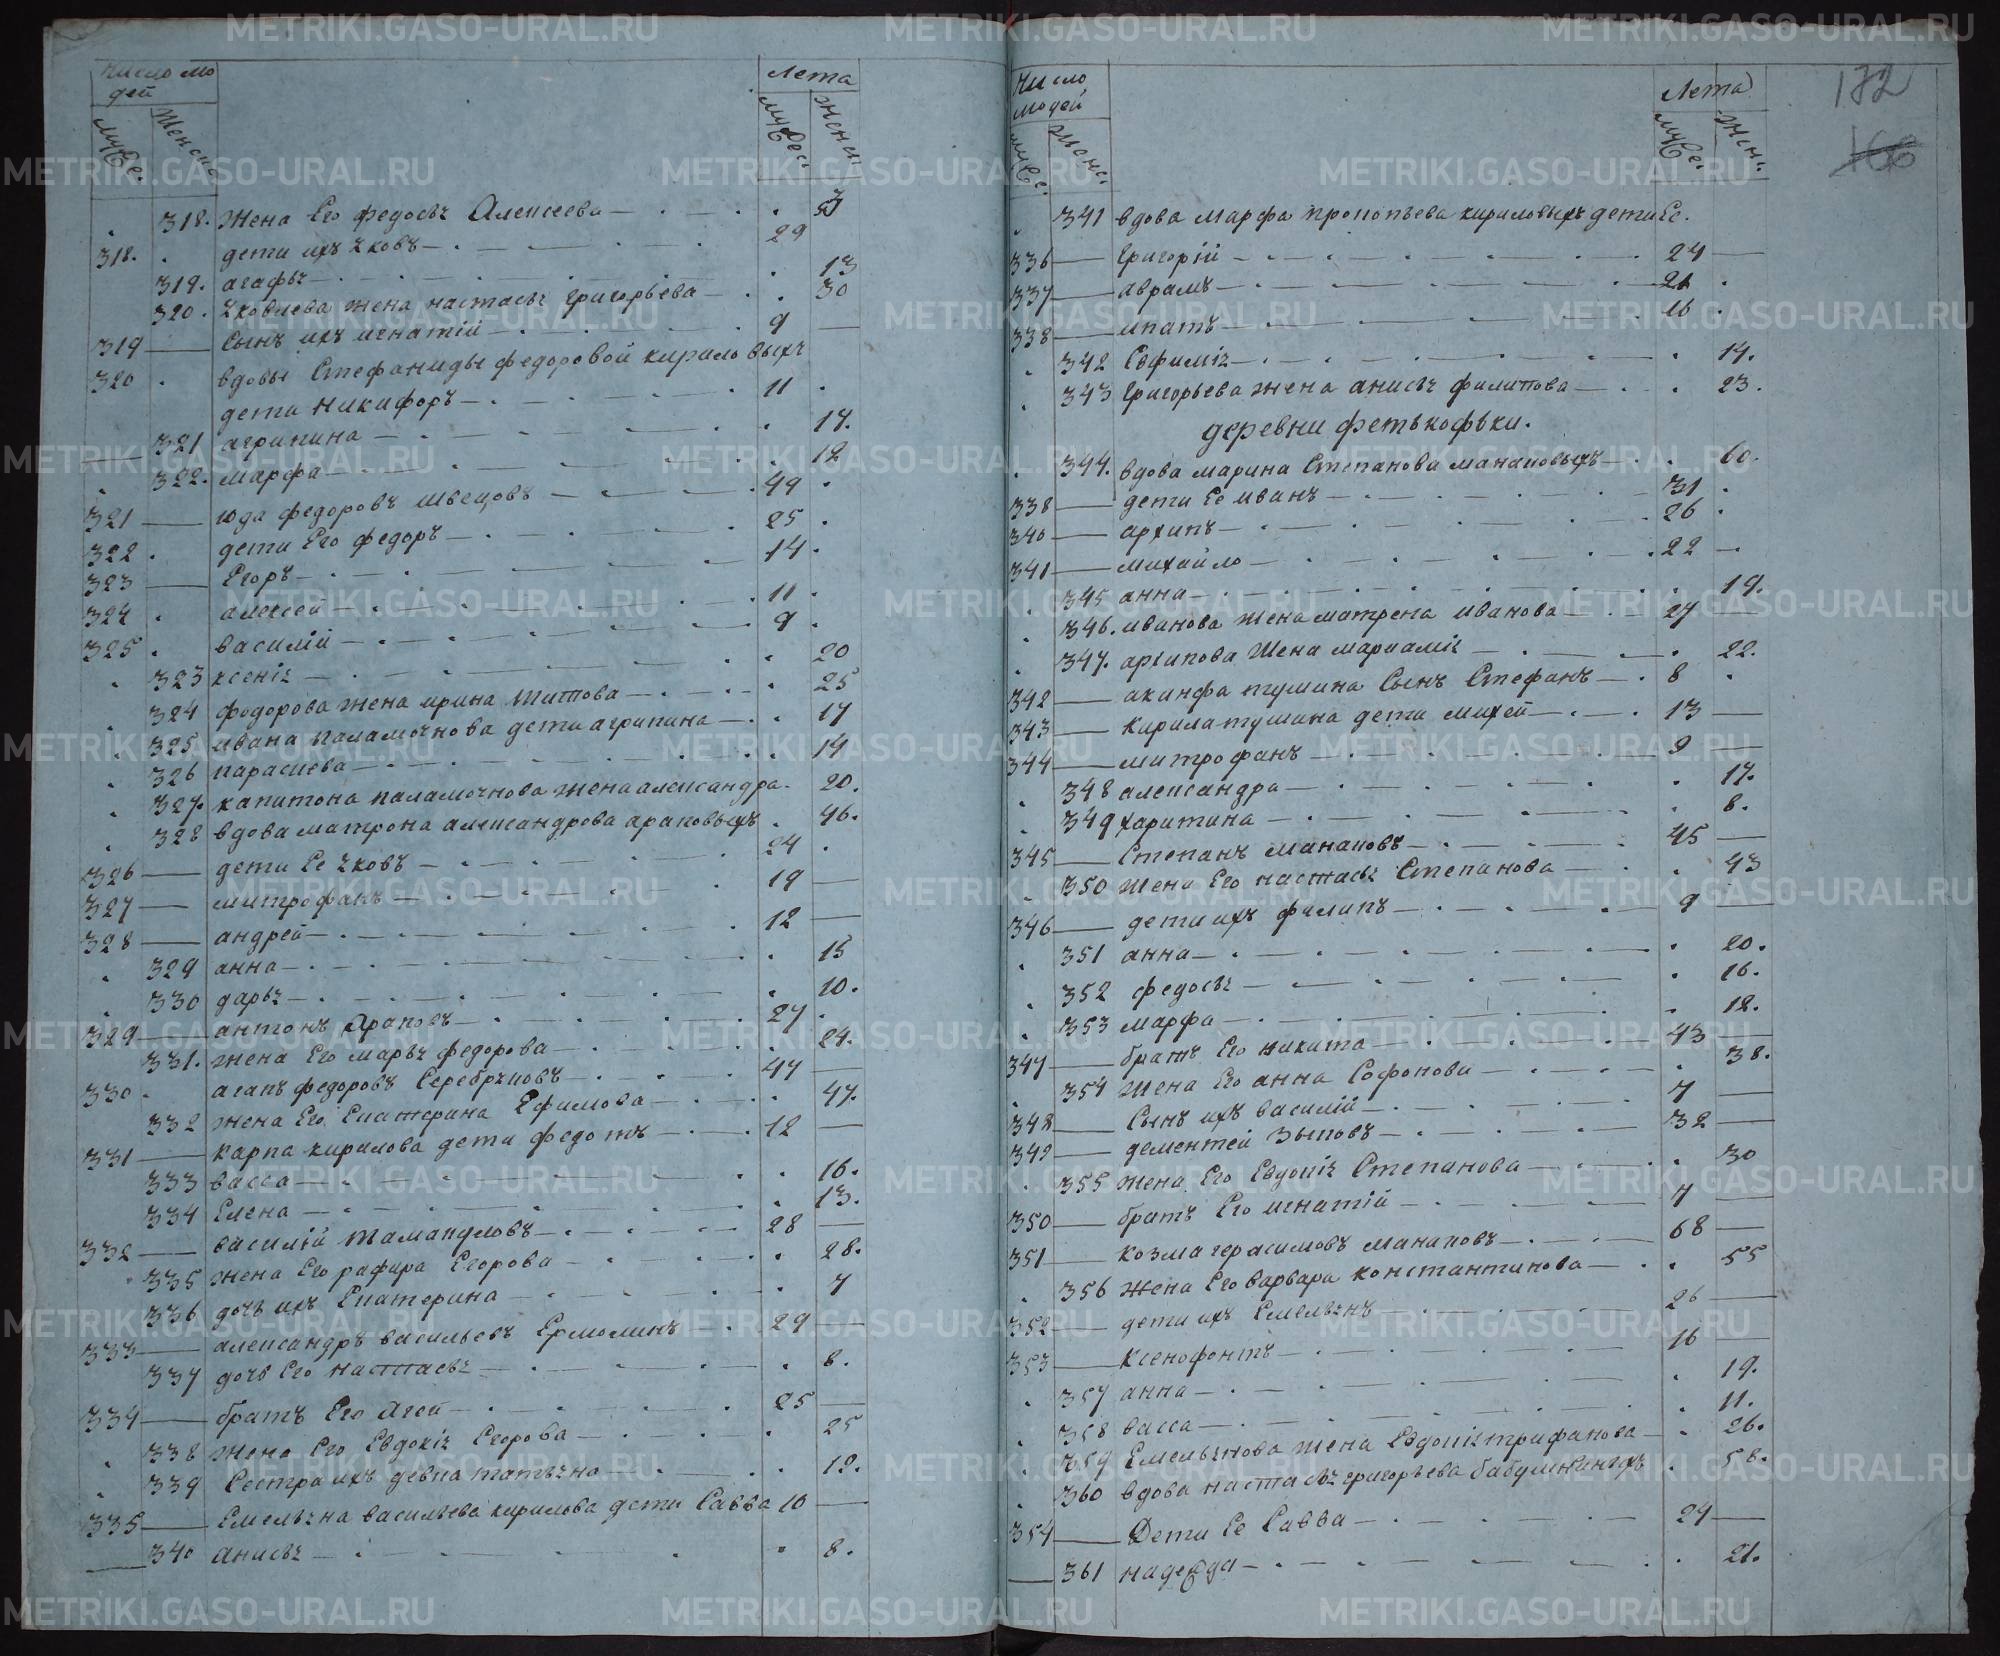 Число лю
дей
Лета
муже.
Женски.
мужес.
женски.
318. жена Его федосья Алексеева 53
318. дети ихъ яковъ 29
319. агафья 13
320. яковлева жена настасья григорьева 30
319 Сынъ ихъ игнатiй 9
320 вдовы Стефаниды федоровой кириловыхъ
дети никифоръ 11
321 агрипина 17.
322. марфа 12
321 юда федоровъ швецовъ 49
322 дети Его федоръ 25
323 Егоръ 14
324 алексей 11
325 василiй 9
323 ксенiя 20
324 фодорова жена ирина титова 25
325 ивана паламочнова дети агрипина 17
326 парасиева 14
327. капитона паламочнова жена александра 20.
328 вдова матрона александрова араповыхъ 46.
326 дети Ее яковъ 24
327 митрофанъ 19
328 андрей 12
329 анна 15
330 дарья 10.
329 антонъ Араповъ 27
331. жена Его марья федорова 24.
330 агапъ федоровъ Серебряковъ 47
332 жена Его Екатерина Ефимова 47.
331 карпа кирилова дети федотъ 12
333 васса 16.
334 Елена 13.
332 василiй тамакуловъ 28
335 жена Его рафира Егорова 28.
336 дочь ихъ Екатерина 7
333 александръ васильевъ Ермолинъ 29
337 дочь Его настасья 8.
334 братъ Его Агей 25
338 жена Его Евдокiя Егорова 25
339 Сестра ихъ девка татьяна 12.
335 Емельяна васильева кирилова дети Савва 10
340 анисья 8.
172
166
Число
людей
Лета
муже.
женс.
мужес.
жени.
341 вдова марфа прокопьева кириловыхъ дети Ее.
336 Григорiй 24
337 аврамъ 21
338 ипатъ 16
342 Евфимiя 14.
343 Григорьева жена анисья филипова 23.
деревни фетькофьки.
344. вдова марина Степанова манаковыхъ 60.
338 дети Ее иванъ 31
340 архипъ 26
341 михайло 22
345 анна 19.
346. иванова жена матрена иванова 27
347. архипова жена мариамiя 22.
342 акинфа тушина Сынъ Стефанъ 8
343 кирила тушина дети михей 13
344 митрофанъ 9
348 александра 17.
349 харитина 8.
345 Степанъ манаковъ 45
350 жена Его настасья Степанова 43
346 дети ихъ филипъ 9
351 анна 20.
352 федосья 16.
353 марфа 12.
347 братъ Его никита 43
354 жена Его анна Софонова 38.
348 Сынъ ихъ василiй 7
349 дементей зыковъ 32
355 жена Его Евдокiя Степанова 30
350 братъ Его игнатiй 7
351 козма герасимовъ манаковъ 68
356 жена Его варвара константинова 55
352 дети ихъ Емельянъ 26
353 ксенофонтъ 16
357 анна 19.
358 васса 11.
359 Емельянова жена Евдокiя трифанова 26.
360 вдова настасья григорьева бабушкиныхъ 58.
354 Дети Ее Савва 24
361 надежда 21.
METRIKI.GASO-URAL.RU